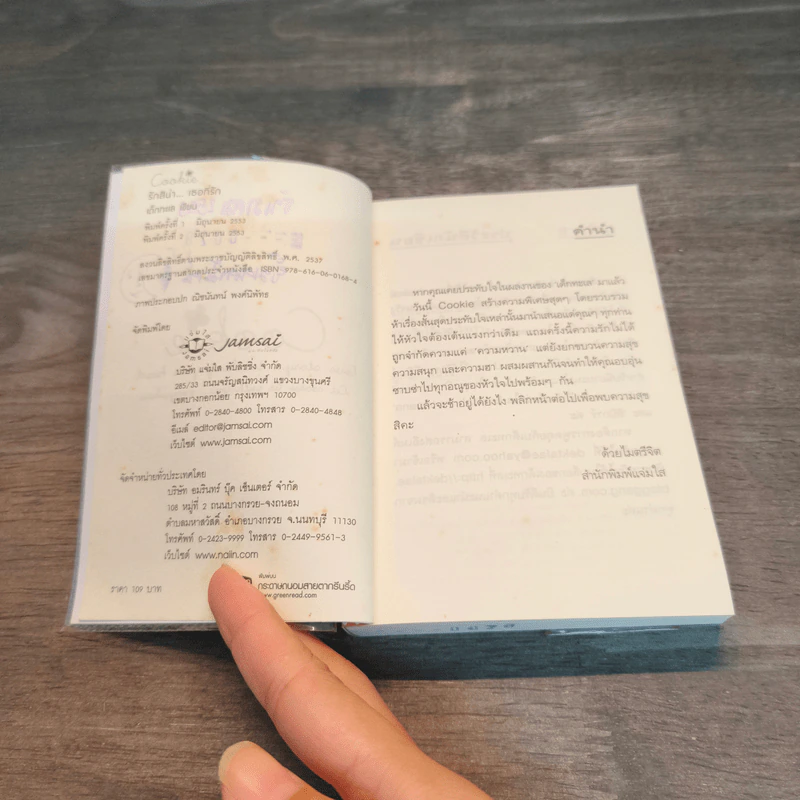 Cookie
รักสีน้ำ... เธอที่รัก
เด็กทะเล เขียน
พิมพ์ครั้งที่ 1 มิถุนายน 2553
พิมพ์ครั้งที่ 2 มิถุนายน 2553
สงวนลิขสิทธิ์ตามพระราชบัญญัติลิขสิทธิ์ พ.ศ. 2537
เลขมาตรฐานสากลประจำหนังสือ ISBN 978-616-06-0168-4
ภาพประกอบปก ณิชนันทน์ พงศ์นิพัทธ
จัดพิมพ์โดย
jamsai
บริษัท แจ่มใส พับลิชชิ่ง จำกัด
285/33 ถนนจรัญสนิทวงศ์ แขวงบางขุนศรี
เขตบางกอกน้อย กรุงเทพฯ 10700
โทรศัพท์ 0-2840-4800 โทรสาร 0-2840-4848
อีเมล์ editor@jamsai.com
เว็บไซต์ www.jamsai.com
จัดจำหน่ายทั่วประเทศโดย
บริษัท อมรินทร์ บุ๊ค เซ็นเตอร์ จำกัด
108 หมู่ที่ 2 ถนนบางกรวย-จงถนอม
ตำบลมหาสวัสดิ์ อำเภอบางกรวย จ.นนทบุรี 11130
โทรศัพท์ 0-2423-9999 โทรสาร 0-2449-9561-3
เว็บไซต์ www.naiin.com
ราคา 109 บาท
พิมพ์บน
กระดาษถนอมสายตากรีนรี้ด
www.greenread.com
คำนำ
หากคุณเคยประทับใจในผลงานของ 'เด็กทะเล' มาแล้ว
วันนี้ Cookie สร้างความพิเศษสุดๆ โดยรวบรวม
ห้าเรื่องสั้นสุดประทับใจเหล่านั้นมานำเสนอแด่คุณๆ ทุกท่าน
ให้หัวใจต้องเต้นแรงกว่าเดิม แถมครั้งนี้ความรักไม่ได้
ถูกจำกัดความแต่ 'ความหวาน' แต่ยังยกขบวนความสุข
ความสนุก และความฮา ผสมผสานกันจนทำให้คุณอบอุ่น
ซาบซ่าไปทุกอณูของหัวใจไปพร้อมๆ กัน
แล้วจะช้าอยู่ได้ยังไง พลิกหน้าต่อไปเพื่อพบความสุข
สิคะ
ด้วยไมตรีจิต
สำนักพิมพ์แจ่มใส